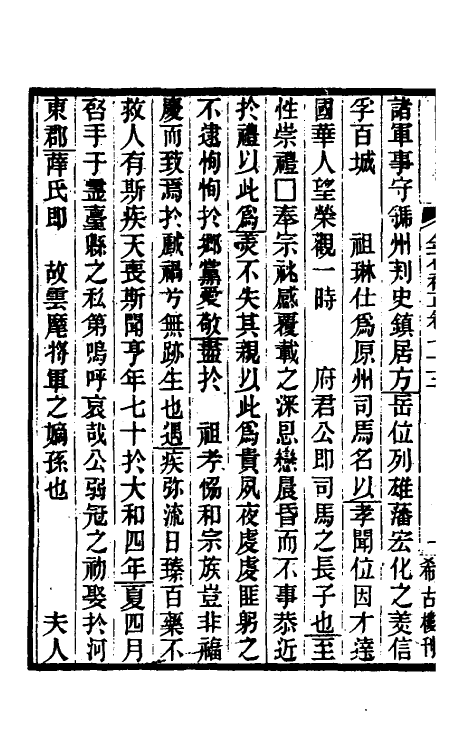 諸軍事守虢州刺史鎮居方岳位列雄藩宏化之美信
孚百城　　祖琳仕爲原州司馬名以孝聞位因才達
國華人望榮觀一時　　府君公即司馬之長子也至
性崇禮□奉宗祧感覆載之深恩戀晨昏而不事恭近
於禮以此爲美不失其親以此爲貴夙夜虔虔匪躬之
不逮恂恂於鄉黨愛敬盡於　祖考恊和宗族豈非福
慶而致焉於戲禍兮無跡生也遇疾弥流日臻百藥不
救人有斯疾天喪斯聞亨年七十於大和四年夏四月
啓手于靈臺縣之私第嗚呼哀哉公弱冠之初娶於河
東郡薛氏即　故雲麾將軍之嫡孫也　　　　夫人
希古樓刊